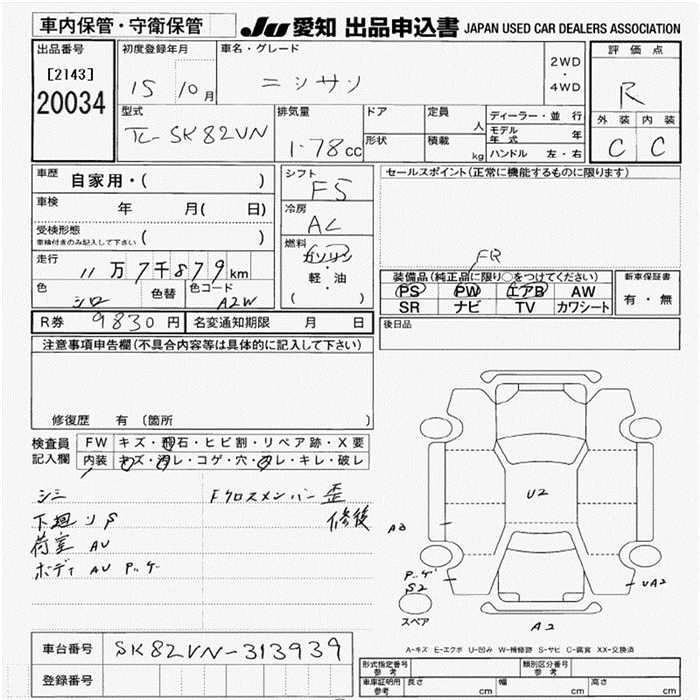 車内保管・守衛保管
JU 愛知 出品申込書 JAPAN USED CAR DEALERS ASSOCIATION
出品番号
[2143]
20034
初度登録年月
15 10月
車名・グレード
ニッサン
2WD
・
4WD
評価点
R
外装 内装
C C
型式
TC-SK82VN
排気量
1.78cc
ドア
形状
定員
人
積載
kg
ディーラー・並行
モデル年式 年
ハンドル 左・右
車歴 自家用・( )
車検 年 月( 日)
受検形態
車検付きのみ記入して下さい ( )
走行 11万7千879km
色 シロ
色替
色コード A2W
シフト
F5
冷房
AC
燃料
ガソリン
・
軽・油
( )
セールスポイント(正常に機能するものに限ります)
FR
装備品(純正品に限り○をつけてください)
PS PW エアB AW
SR ナビ TV カワシート
新車保証書
有・無
R券 9830円
名変通知期限 月 日
後日品
注意事項申告欄(不具合内容等は具体的に記入して下さい)
修復歴 有 (箇所 )
検査員記入欄
FW キズ・飛石・ヒビ割・リペア跡・X要
内装 キズ・汚レ・コゲ・穴・スレ・キレ・破レ
シミ
下廻リ S
荷室 AU
ボディ AU Pッケ
Fクロスメンバー 歪
修後
U2
A3
Pッゲ
S2
UA2
A2
スペア
A-キズ E-エクボ U-凹み W-補修跡 S-サビ C-腐食 XX-交換済
車台番号 SK82VN-313939
登録番号
形式指定番号
参考
類別区分番号
参考
車庫証明用
参考
長さ cm 幅 cm 高さ cm